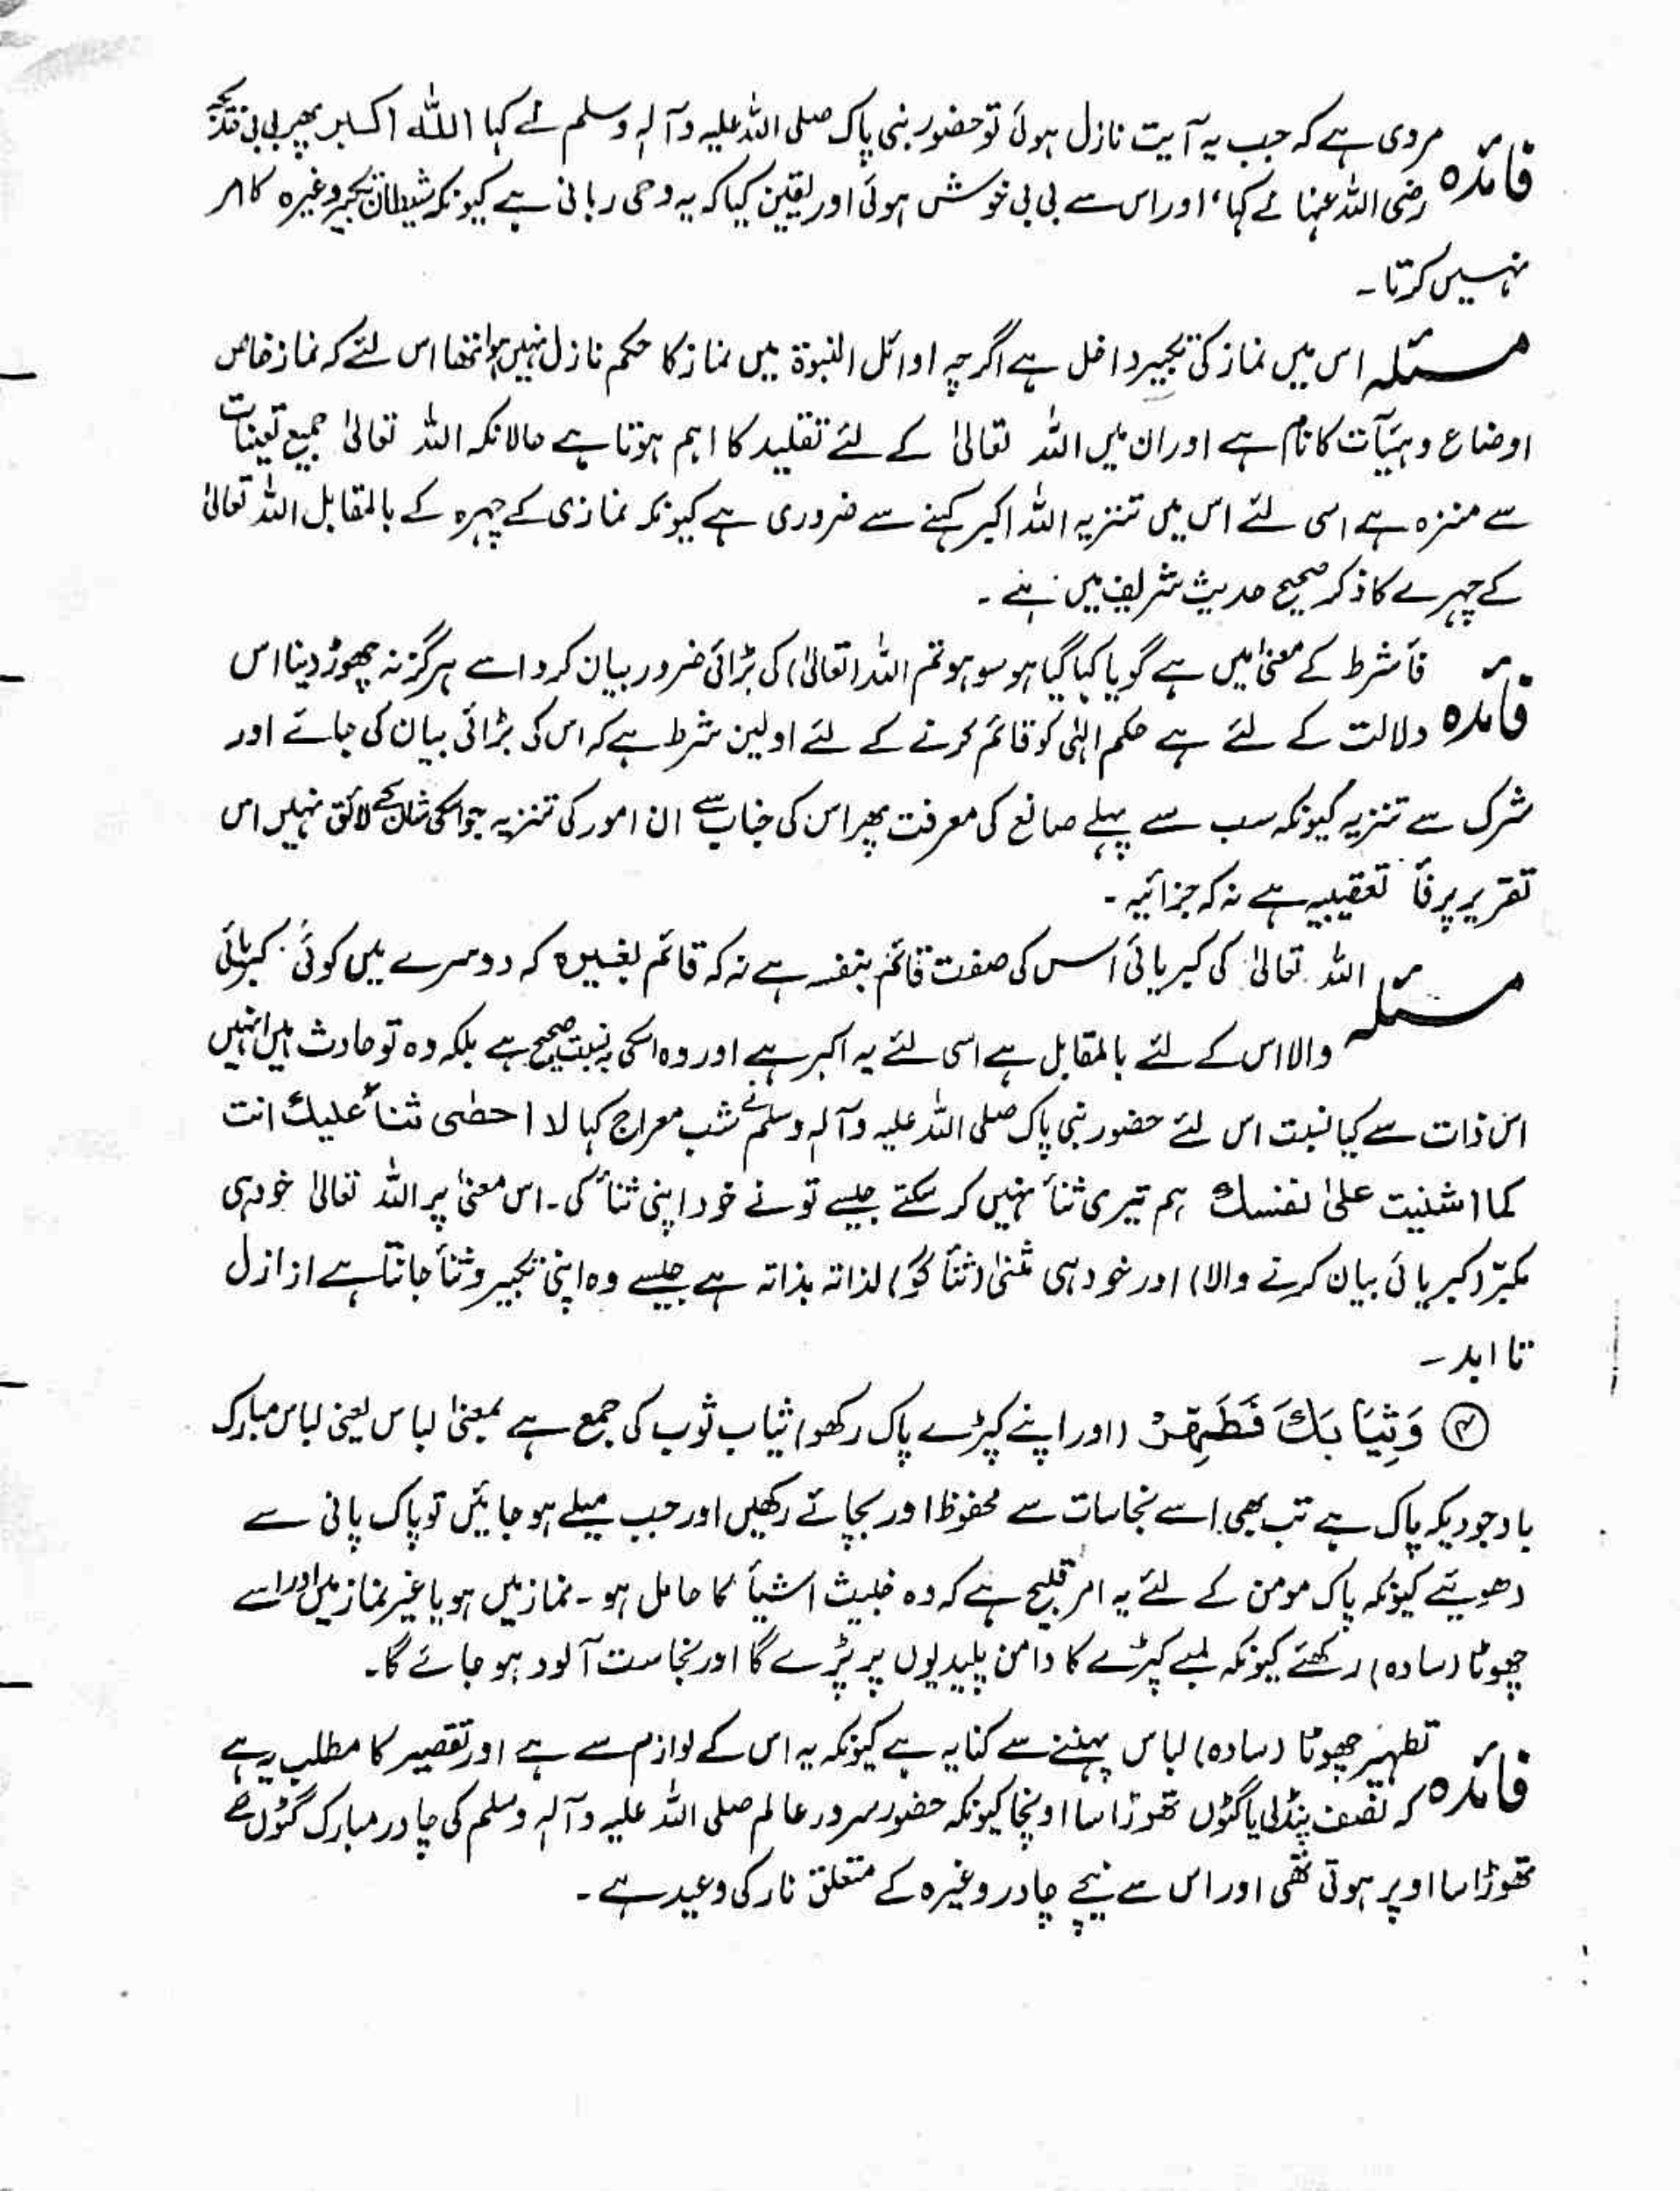 فائدہ مروی ہے کہ جب یہ آیت نازل ہوئی تو حضور نبی پاک صلی اللہ علیہ وآلہ وسلم نے کہا اللہ اکبر پھر بی بی خدیجہ
رضی اللہ عنہا نے کہا، اور اس سے بی بی خوش ہوئی اور یقین کیا کہ یہ وحی ربانی ہے کیونکہ شیطان تکبیر وغیرہ کا امر
نہیں کرتا۔
مسئلہ اس میں نماز کی تکبیر داخل ہے اگرچہ اوائل النبوۃ میں نماز کا حکم نازل نہیں ہوا تھا اس لئے کہ نماز خاص
اوضاع وہیئآت کا نام ہے اور ان میں اللہ تعالیٰ کے لئے تقلید کا اہم ہوتا ہے حالانکہ اللہ تعالیٰ جمیع تعینات
سے منزہ ہے اسی لئے اس میں تنزیہ اللہ اکبر کہنے سے ضروری ہے کیونکہ نمازی کے چہرہ کے بالمقابل اللہ تعالیٰ
کے چہرے کا ذکر صحیح حدیث شریف میں ہے۔
فائدہ فأ شرط کے معنیٰ میں ہے گویا کہا گیا ہو سو ہو تم اللہ (تعالیٰ) کی بڑائی ضرور بیان کرو اسے ہرگز نہ چھوڑ دینا اس
دلالت کے لئے ہے حکم الٰہی کو قائم کرنے کے لئے اولین شرط ہے کہ اس کی بڑائی بیان کی جائے اور
شرک سے تنزیہ کیونکہ سب سے پہلے صانع کی معرفت پھر اس کی جناب سے ان امور کی تنزیہ جو اسکی شان کے لائق نہیں اس
تقریر پر فأ تعقیبیہ ہے نہ کہ جزائیہ۔
مسئلہ اللہ تعالیٰ کی کبریائی اس کی صفت قائم بنفسہ ہے نہ کہ قائم لغیرہ کہ دوسرے میں کوئی کبریائی
والا اس کے لئے بالمقابل ہے اسی لئے یہ اکبر ہے اور وہ اسکی بہ نسبت صحیح ہے بلکہ وہ تو حادث ہیں انہیں
اس ذات سے کیا نسبت اس لئے حضور نبی پاک صلی اللہ علیہ وآلہ وسلم نے شب معراج کہا لا احصٰی ثنأ علیک انت
کما اثنیت علیٰ نفسک ہم تیری ثنأ نہیں کر سکتے جیسے تو نے خود اپنی ثنأ کی۔ اس معنیٰ پر اللہ تعالیٰ خود ہی
مکبّر (کبریائی بیان کرنے والا) اور خود ہی مثنیٰ (ثنأ گو) لذاتہ بذاتہ ہے جیسے وہ اپنی تکبیر وثنأ جانتا ہے از ازل
تا ابد۔
④ وَثِیَابَکَ فَطَہِّرْ (اور اپنے کپڑے پاک رکھو) ثیاب ثوب کی جمع ہے بمعنیٰ لباس یعنی لباس مبارک
باوجودیکہ پاک ہے تب بھی اسے نجاسات سے محفوظ اور بچائے رکھیں اور جب میلے ہو جائیں تو پاک پانی سے
دھوئیے کیونکہ پاک مومن کے لئے یہ امر قبیح ہے کہ وہ خبیث اشیأ کا حامل ہو۔ نماز میں ہو یا غیر نماز میں اور اسے
چھوٹا (سادہ) رکھئے کیونکہ لمبے کپڑے کا دامن پلیدیوں پر پڑے گا اور نجاست آلود ہو جائے گا۔
فائدہ تطہیر چھوٹا (سادہ) لباس پہننے سے کنایہ ہے کیونکہ یہ اس کے لوازم سے ہے اور تقصیر کا مطلب یہ ہے
کہ نصف پنڈلی یا گٹوں تھوڑا سا اونچا کیونکہ حضور سرور عالم صلی اللہ علیہ وآلہ وسلم کی چادر مبارک گٹوں سے
تھوڑا سا اوپر ہوتی تھی اور اس سے نیچے چادر وغیرہ کے متعلق نار کی وعید ہے۔